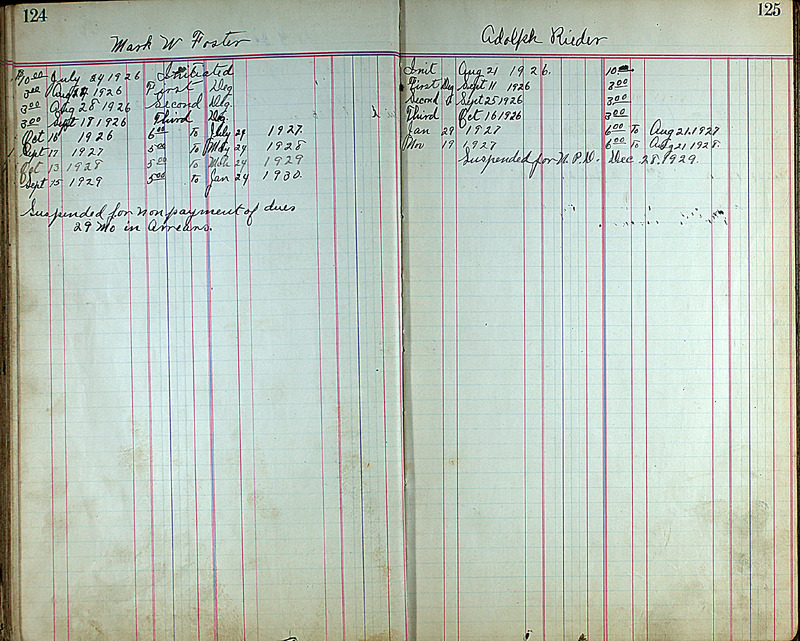 124
Mark W Foster
$10.00 July 24 1926 Initiated
3.00 Aug 1926 First Deg
3.00 Aug 28 1926 Second Deg.
3.00 Sept 18 1926 Third Deg.
Oct 16 1926 6.00 To July 24 1927
Sept 17 1927 5.00 To May 24 1928
Oct 13 1928 5.00 To 24 1929
Sept 15 1929 5.00 to Jan 24 1930.
Suspended for non payment of dues
29 Mo in Arrears.
125
Adolph Rieder
Init Aug 21 1926. 10.00
First Deg Sept 11 1926 3.00
Second d Sept 25 1926 3.00
Third Oct 16 1926 3.00
Jan 29 1927 6.00 To Aug 21, 1927
Nov 19 1927 6.00 To Aug 21 1928
Suspended for N. P. D. Dec 28, 1929.